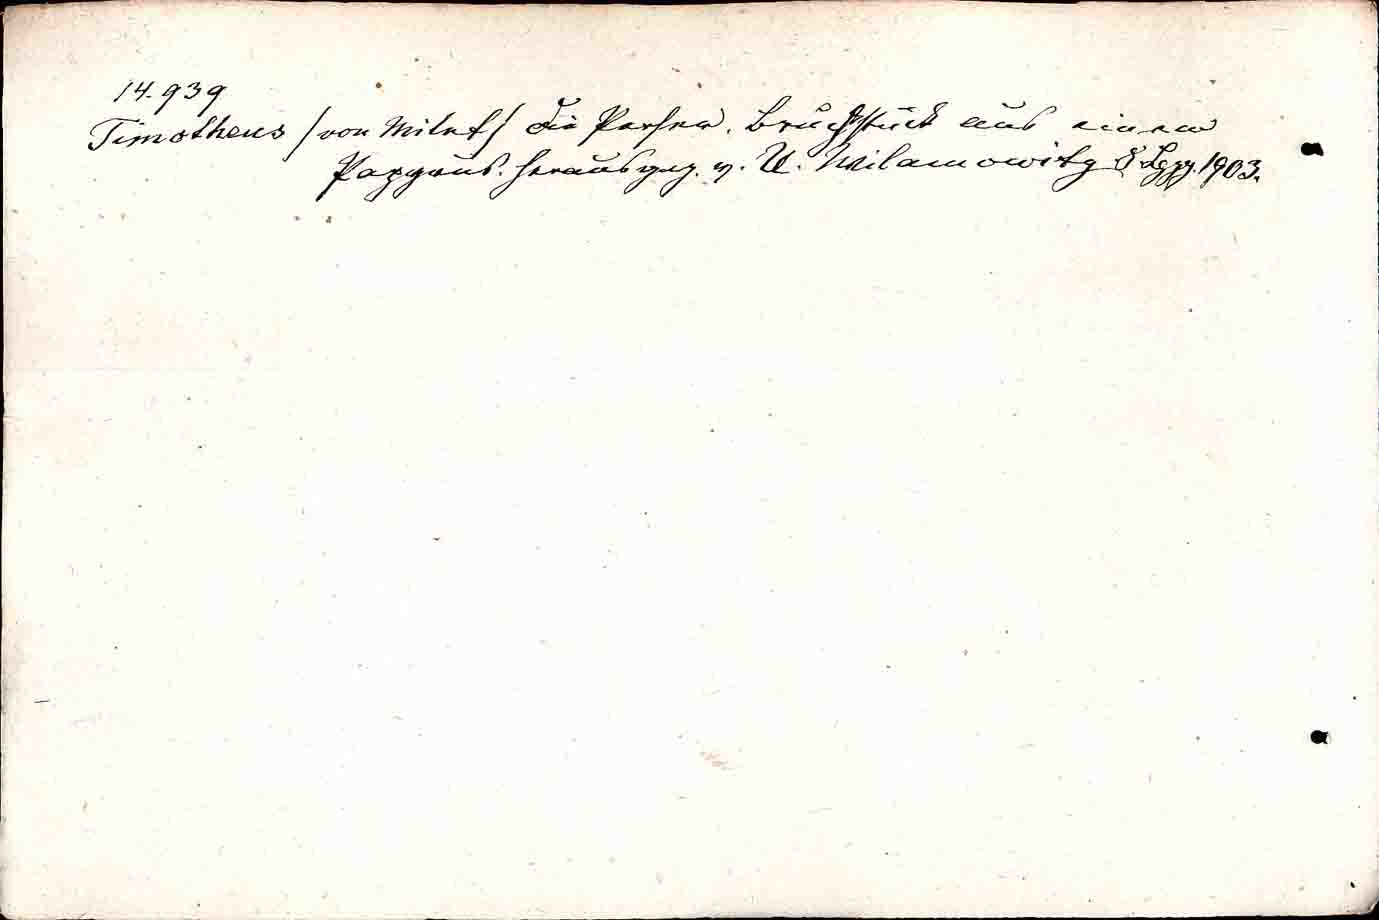 14.939
Timotheus (von Milet) Die Perser. Bruchstück aus einem
Papyrus. Herausgeg. v. U. Wilamowitz 8° Lpzg. 1903.